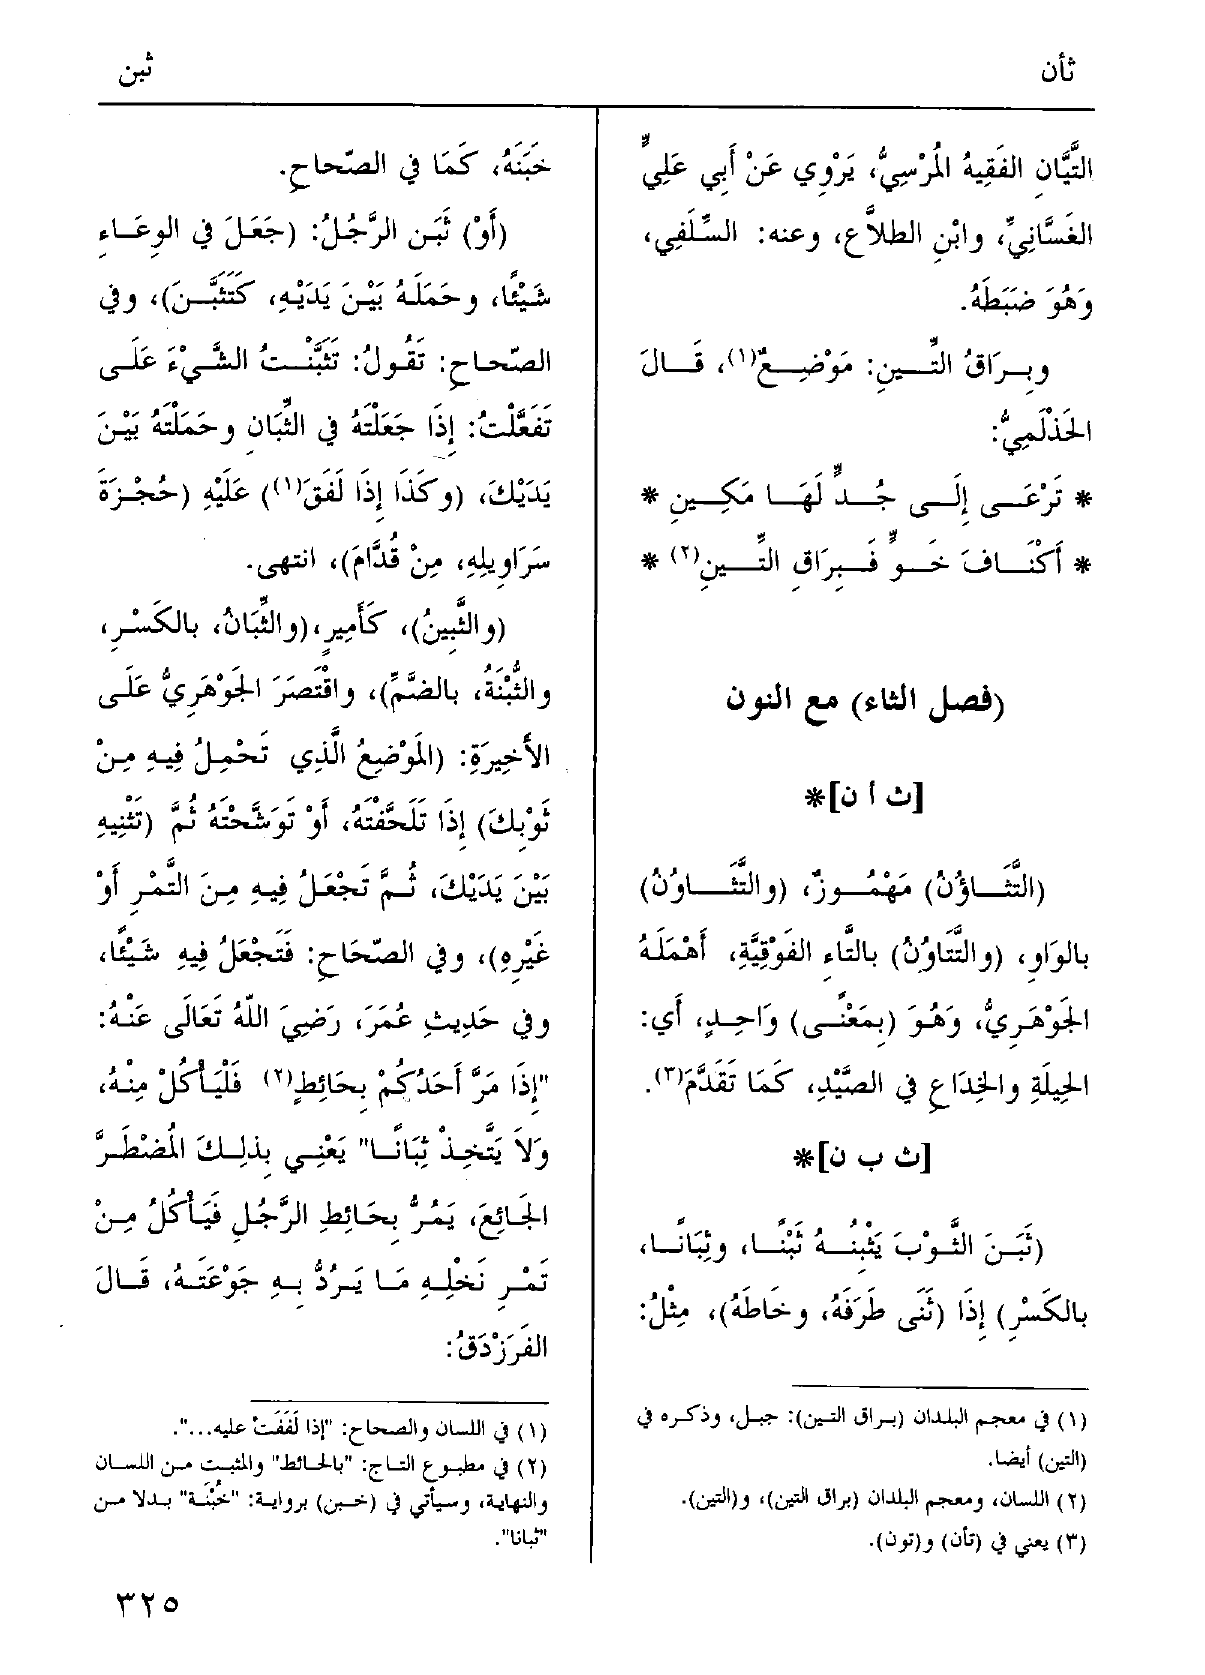 ثأن
ثبن
التَّيَّانِ الفَقِيهُ المُرْسِيُّ، يَرْوِي عَنْ أَبِي عَلِيٍّ
الغَسَّانِيِّ، وابْنِ الطلاَّعِ، وعنه: السِّلَفِي،
وَهُوَ ضَبَطَهُ.
وبِرَاقُ التِّينِ: مَوْضِعٌ(١)، قَالَ
الحَذْلَمِيُّ:
* تَرْعَى إِلَى جُدٍّ لَهَا مَكِينِ *
* أَكْنَافَ خَوٍّ فَبِرَاقِ التِّينِ(٢) *
(فصل الثاء) مع النون
[ث أ ن]*
(التَّثَاؤُنُ) مَهْمُوزٌ، (والتَّثَاوُنُ)
بالوَاوِ، (والتَّتَاوُنُ) بالتَّاءِ الفَوْقِيَّةِ، أَهْمَلَهُ
الجَوْهَرِيُّ، وَهُوَ (بِمَعْنًى) وَاحِدٍ، أَي:
الحِيلَةِ والخِدَاعِ فِي الصَّيْدِ، كَمَا تَقَدَّمَ(٣).
[ث ب ن]*
(ثَبَنَ الثَّوْبَ يَثْبِنُهُ ثَبْنًا، وثِبَانًا،
بالكَسْرِ) إِذَا (ثَنَى طَرَفَهُ، وخَاطَهُ)، مِثْلُ:
(١) في معجم البلدان (براق التين): جبل، وذكره في
(التين) أيضا.
(٢) اللسان، ومعجم البلدان (براق التين)، و(التين).
(٣) يعني في (تأن) و(تون).
خَبَنَهُ، كَمَا فِي الصّحاحِ.
(أَوْ) ثَبَن الرَّجُلُ: (جَعَلَ فِي الوِعَاءِ
شَيْئًا، وحَمَلَهُ بَيْنَ يَدَيْهِ، كَتَثَبَّنَ)، وفي
الصّحاحِ: تَقُولُ: تَثَبَّنْتُ الشَّيْءَ عَلَى
تَفَعَّلْتُ: إِذَا جَعَلْتَهُ فِي الثِّبَانِ وحَمَلْتَهُ بَيْنَ
يَدَيْكَ، (وكَذَا إِذَا لَفَقَ(١)) عَلَيْهِ (حُجْزَةَ
سَرَاوِيلِهِ، مِنْ قُدَّامَ)، انتهى.
(والثَّبِينُ)، كَأَمِيرٍ، (والثِّبَانُ، بالكَسْرِ،
والثُّبْنَةُ، بالضَّمِّ)، واقْتَصَرَ الجَوْهَرِيُّ عَلَى
الأَخِيرَةِ: (المَوْضِعُ الَّذِي تَحْمِلُ فِيهِ مِنْ
ثَوْبِكَ) إِذَا تَلَحَّفْتَهُ، أَوْ تَوَشَّحْتَهُ ثُمَّ (تَثْنِيهِ
بَيْنَ يَدَيْكَ، ثُمَّ تَجْعَلُ فِيهِ مِنَ التَّمْرِ أَوْ
غَيْرِهِ)، وفي الصّحَاحِ: فَتَجْعَلُ فِيهِ شَيْئًا،
وفي حَدِيثِ عُمَرَ، رَضِيَ اللّهُ تَعَالَى عَنْهُ:
"إِذَا مَرَّ أَحَدُكُمْ بِحَائطٍ(٢) فَلْيَأْكُلْ مِنْهُ،
وَلاَ يَتَّخِذْ ثِبَانًا" يَعْنِي بِذلِكَ المُضْطَرَّ
الجَائِعَ، يَمُرُّ بِحَائطِ الرَّجُلِ فَيَأْكُلُ مِنْ
تَمْرِ نَخْلِهِ مَا يَرُدُّ بِهِ جَوْعَتَهُ، قَالَ
الفَرَزْدَقُ:
(١) في اللسان والصحاح: "إذا لَفَفَتَْ عليه...".
(٢) في مطبوع التاج: "بالحائط" والمثبت من اللسان
والنهاية، وسيأتي في (خبن) برواية: "خُبْنَة" بدلا من
"ثبانا".
٣٢٥